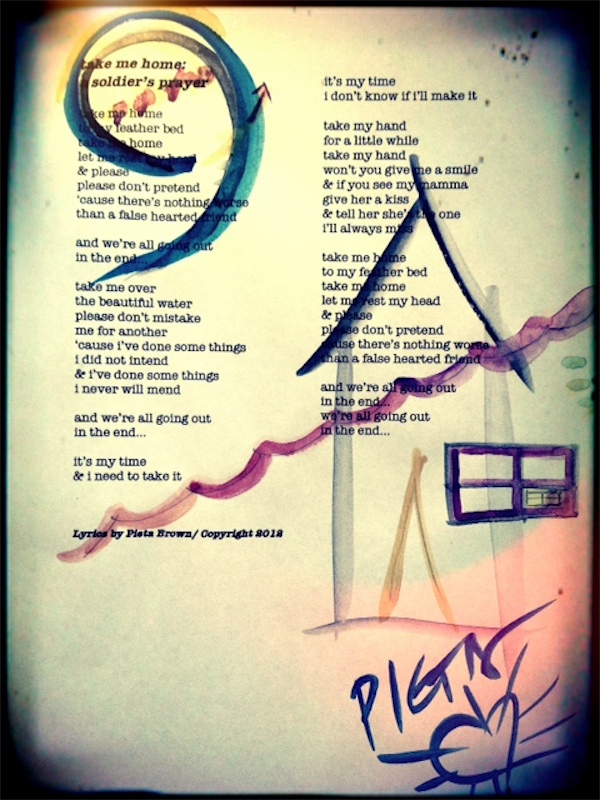 take me home:
a soldier's prayer

take me home
to my feather bed
take me home
let me rest my head
& please
please don't pretend
'cause there's nothing worse
than a false hearted friend

and we're all going out
in the end...

take me over
the beautiful water
please don't mistake
me for another
'cause i've done some things
i did not intend
& i've done some things
i never will mend

and we're all going out
in the end...

it's my time
& i need to take it

it's my time
i don't know if i'll make it

take my hand
for a little while
take my hand
won't you give me a smile
& if you see my mamma
give her a kiss
& tell her she's the one
i'll always miss

take me home
to my feather bed
take me home
let me rest my head
& please
please don't pretend
'cause there's nothing worse
than a false hearted friend

and we're all going out
in the end...
we're all going out
in the end...

Lyrics by Pieta Brown/ Copyright 2012

PIETA